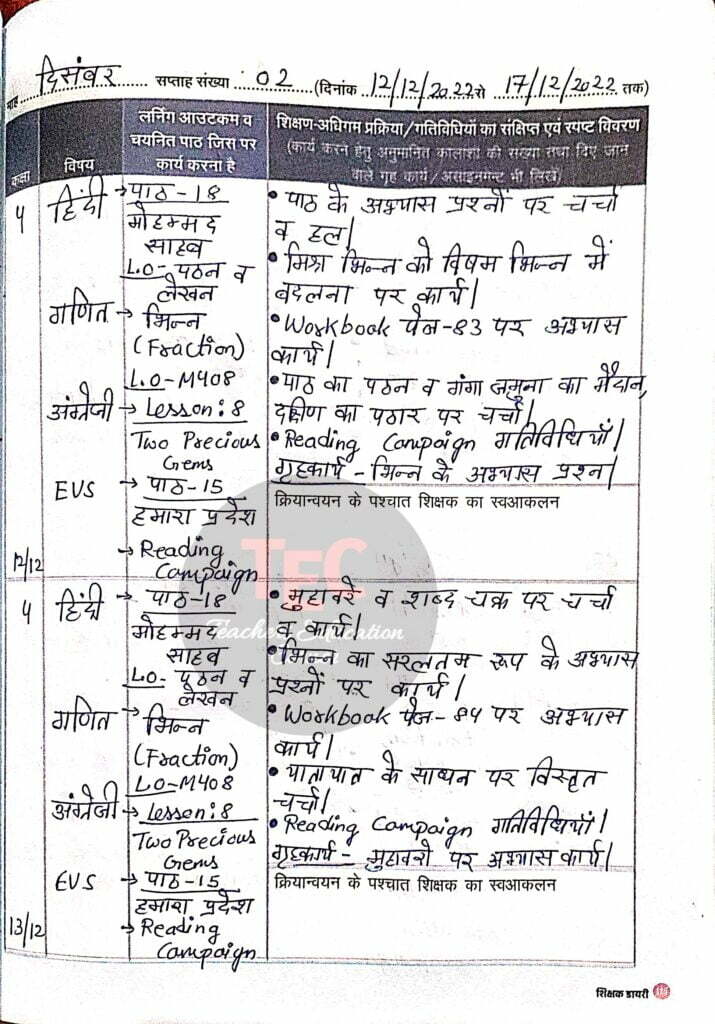 माह दिसंबर सप्ताह संख्या 02 (दिनांक 12/12/2022 से 17/12/2022 तक)
कक्षा
विषय
लर्निंग आउटकम व
चयनित पाठ जिस पर
कार्य करना है
शिक्षण-अधिगम प्रक्रिया/गतिविधियों का संक्षिप्त एवं स्पष्ट विवरण
(कार्य करन हेतु अनुमानित कालाशों की संख्या तथा दिए जान
वाले गृह कार्य / असाइनमेन्ट भी लिखें)
4
12/12
हिंदी
गणित
अंग्रेजी
EVS
→ पाठ-18
मोहम्मद
साहब
L.O- पठन व
लेखन
→ भिन्न
(Fraction)
L.O-M408
→ Lesson: 8
Two Precious
Gems
→ पाठ-15
हमारा प्रदेश
→ Reading
Campaign
• पाठ के अभ्यास प्रश्नों पर चर्चा
व हल|
• मिश्र भिन्न को विषम भिन्न में
बदलना पर कार्य|
• Workbook पेज-83 पर अभ्यास
कार्य|
• पाठ का पठन व गंगा जमुना का मैदान,
दक्षिण का पठार पर चर्चा|
• Reading Campaign गतिविधियाँ|
गृहकार्य - भिन्न के अभ्यास प्रश्न|
क्रियान्वयन के पश्चात शिक्षक का स्वआकलन
4
13/12
हिंदी
गणित
अंग्रेजी
EVS
→ पाठ-18
मोहम्मद
साहब
L.O- पठन व
लेखन
→ भिन्न
(Fraction)
L.O-M408
→ Lesson: 8
Two Precious
Gems
→ पाठ-15
हमारा प्रदेश
→ Reading
Campaign
• मुहावरे व शब्द चक्र पर चर्चा
व कार्य|
• भिन्न का सरलतम रूप के अभ्यास
प्रश्नों पर कार्य|
• Workbook पेज-84 पर अभ्यास
कार्य|
• यातायात के साधन पर विस्तृत
चर्चा|
• Reading Campaign गतिविधियाँ|
गृहकार्य - मुहावरो पर अभ्यास कार्य|
क्रियान्वयन के पश्चात शिक्षक का स्वआकलन
TEC
Teacher Education
शिक्षक डायरी